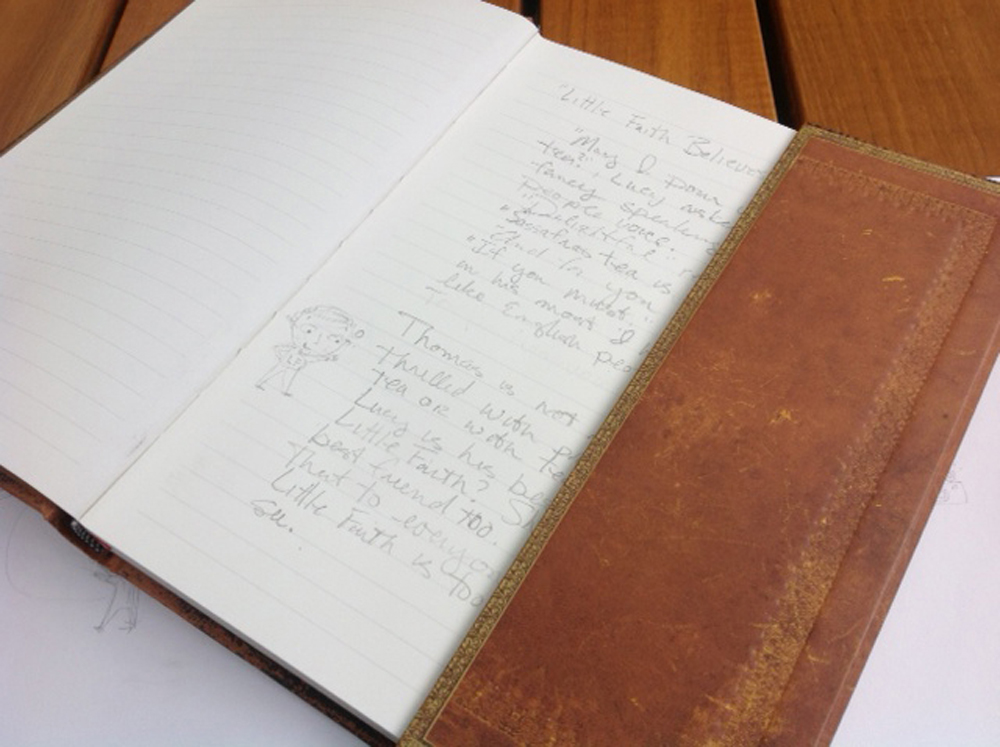 "Little Faith Believes
"May I pour
tea?", Lucy asks
fancy speaking
People voice.
"Delightful."
"Sassafras tea is
And for you
"If you must,"
in his most "I
like English peo
Thomas is not
thrilled with
tea or with
Lucy is his bes
Little Faith? S
best friend too.
that to everyo
Little Faith is too
See.